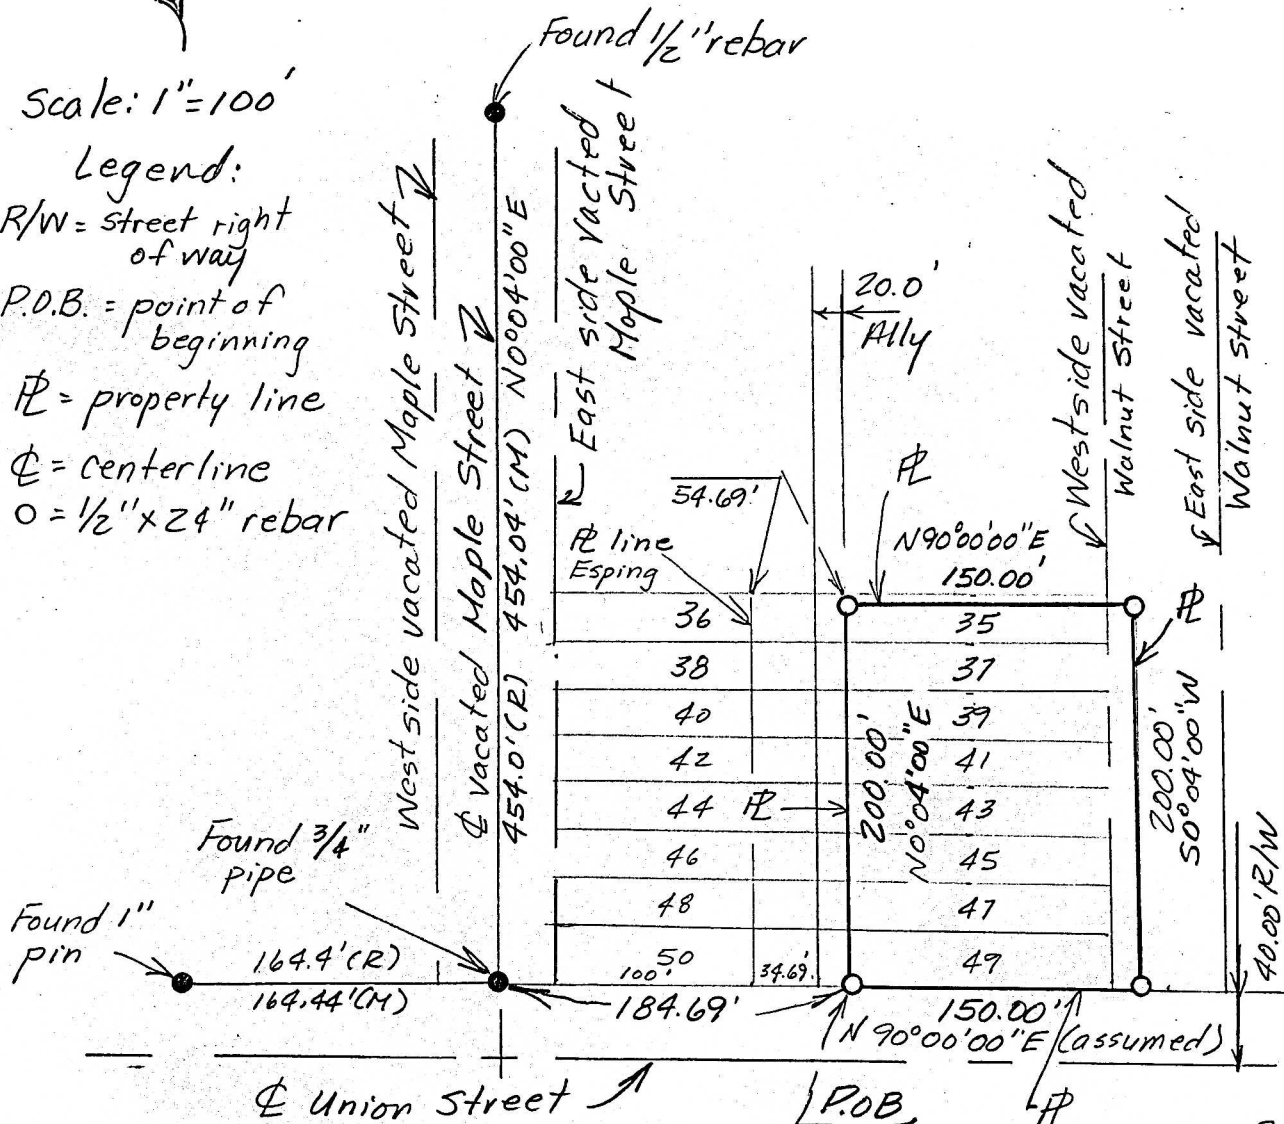 Found 1/2" rebar
Scale: 1"=100'
Legend:
R/W = street right
of way
P.O.B. = point of
beginning
PL = property line
CL = centerline
O = 1/2" x 24" rebar
West side vacated Maple Street
CL vacated Maple Street
454.0'(R) 454.04'(M) N0°04'00"E
East side vacted
Maple Street
20.0'
Ally
West side vacated
Walnut Street
East side vacated
Walnut Street
54.69'
PL
PL line
Esping
N90°00'00"E
150.00'
36
35
PL
38
37
40
39
42
41
44
PL
43
46
45
48
47
50
49
200.00'
N0°04'00"E
200.00'
S0°04'00"W
40.00' R/W
Found 3/4"
pipe
Found 1"
pin
164.4'(R)
164.44'(M)
100'
34.69'
184.69'
150.00'
N 90°00'00"E (assumed)
CL Union Street
P.O.B.
PL